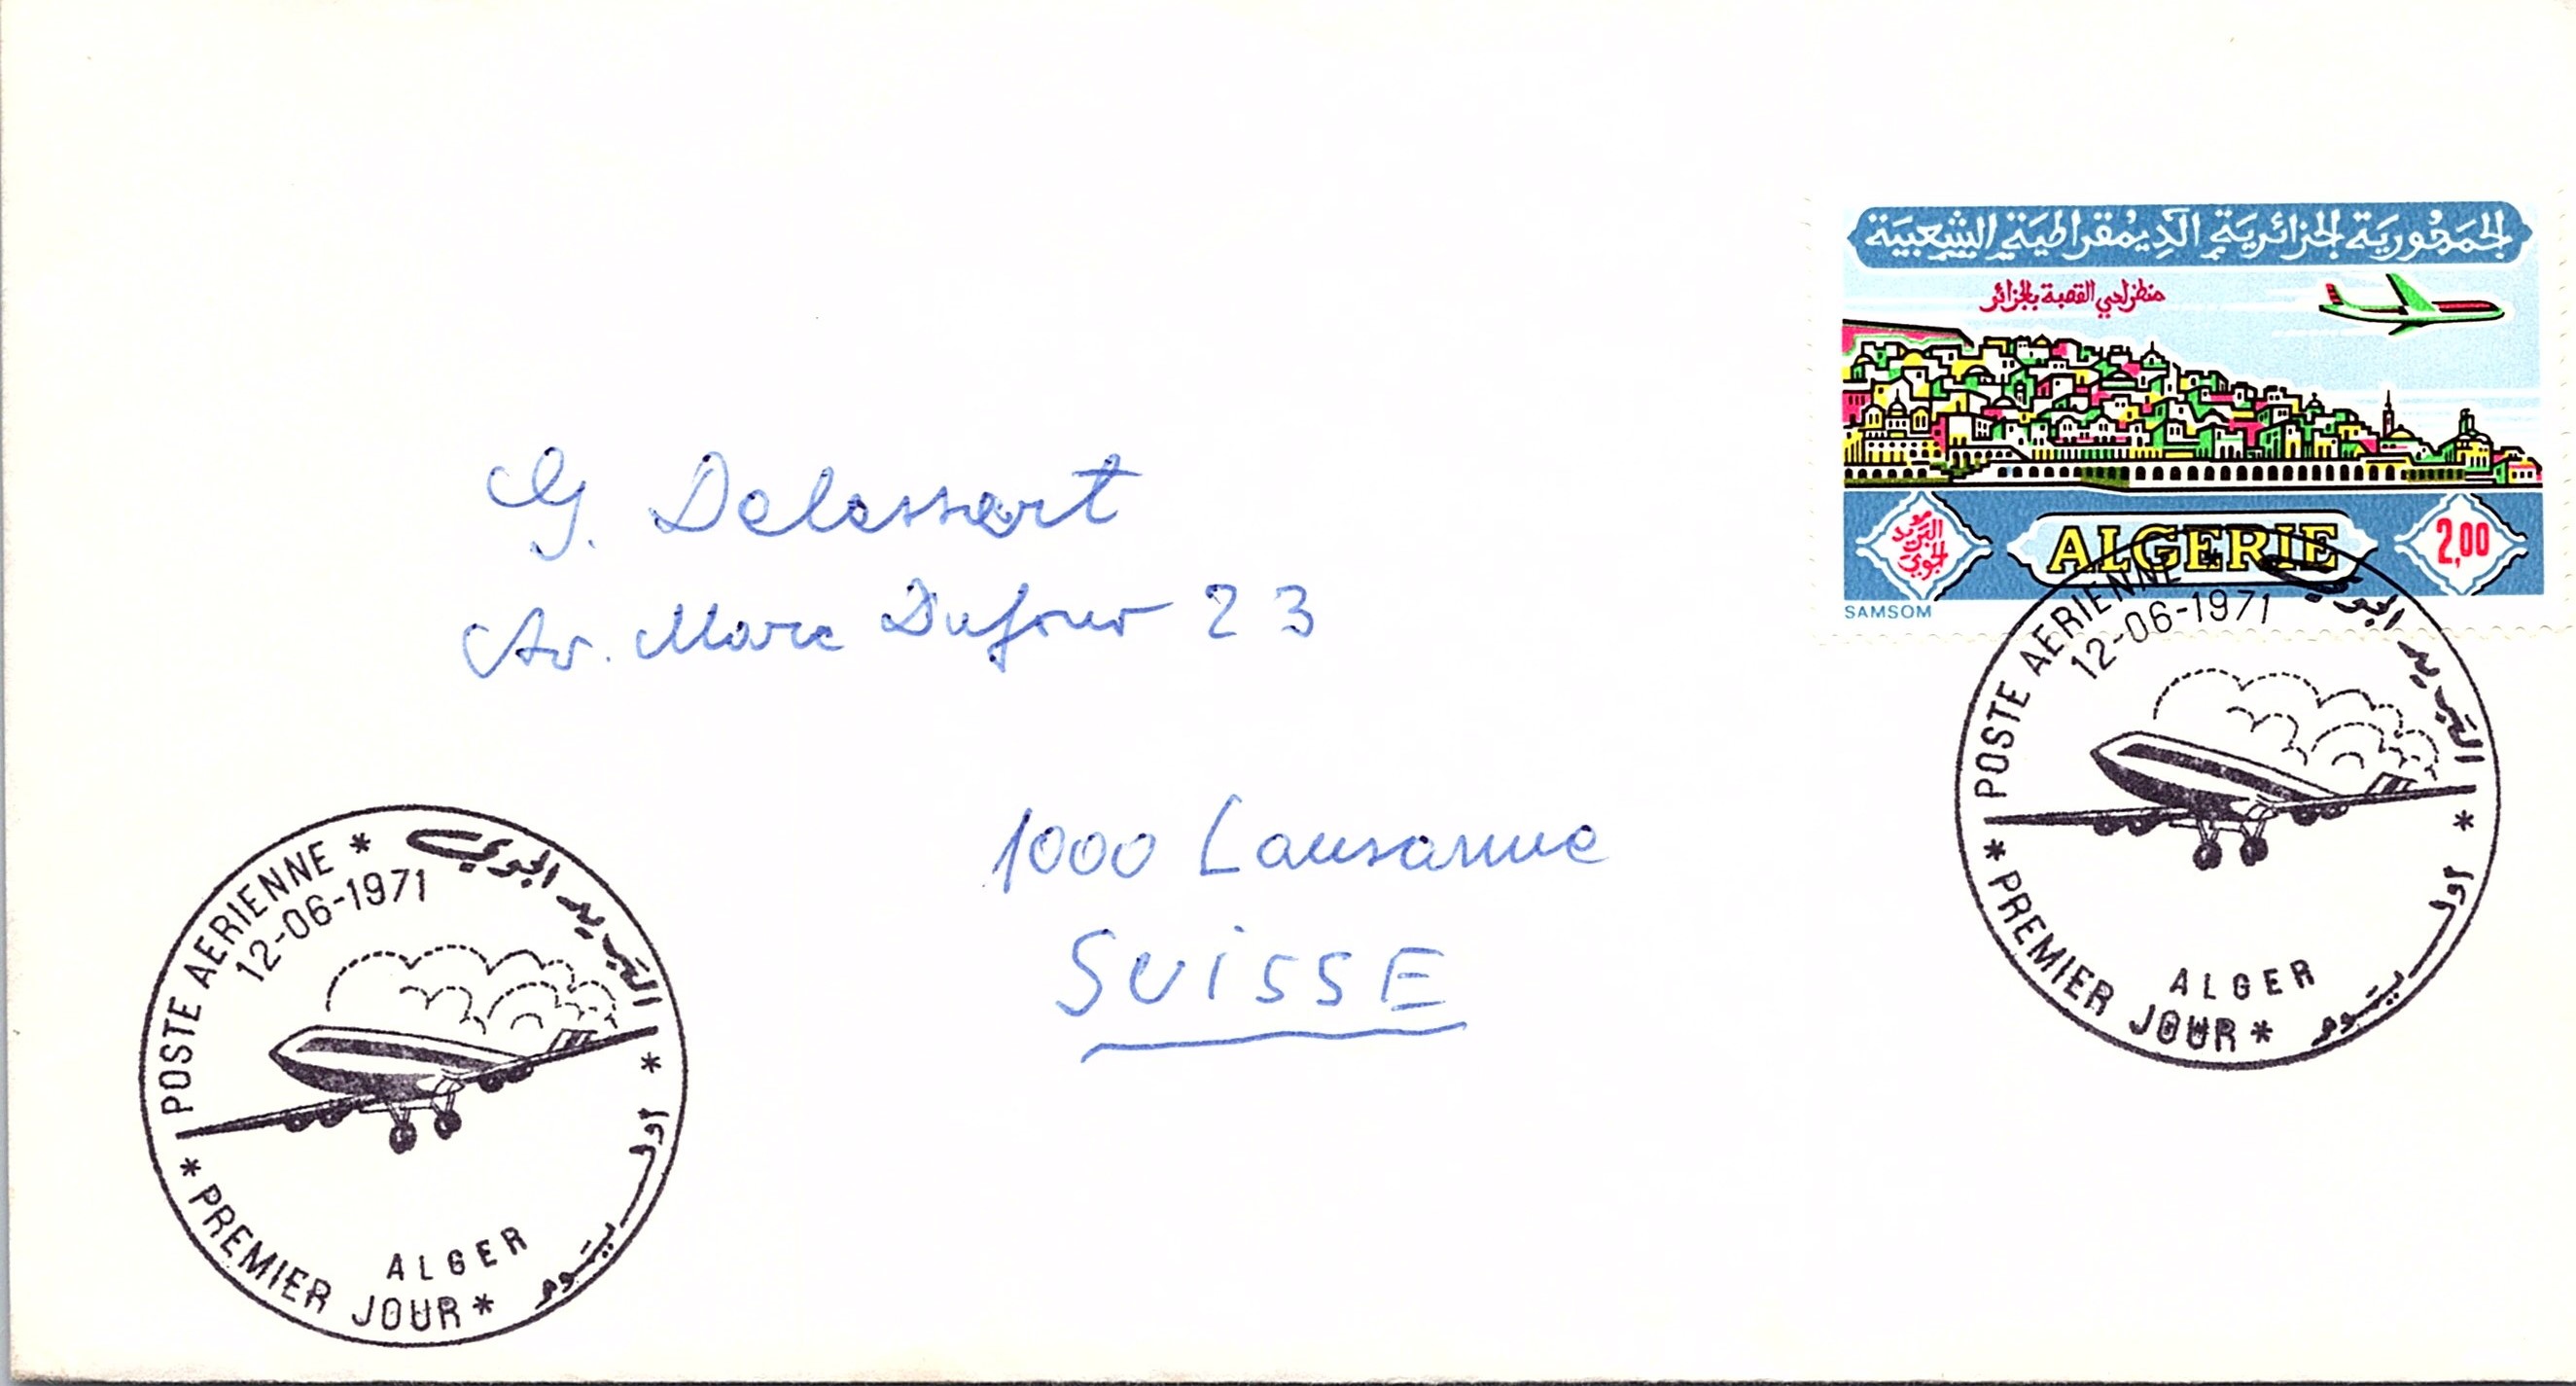 الجمهورية الجزائرية الديمقراطية الشعبية
منظر لحي القصبة بالجزائر
البريد الجوي
ALGERIE
2,00
SAMSOM
G. Delessert
Av. Marc Dufour 23
1000 Lausanne
SUISSE
POSTE AERIENNE * البريد الجوي
12-06-1971
ALGER
* PREMIER JOUR * أول يوم *
POSTE AERIENNE * البريد الجوي
12-06-1971
ALGER
* PREMIER JOUR * أول يوم *